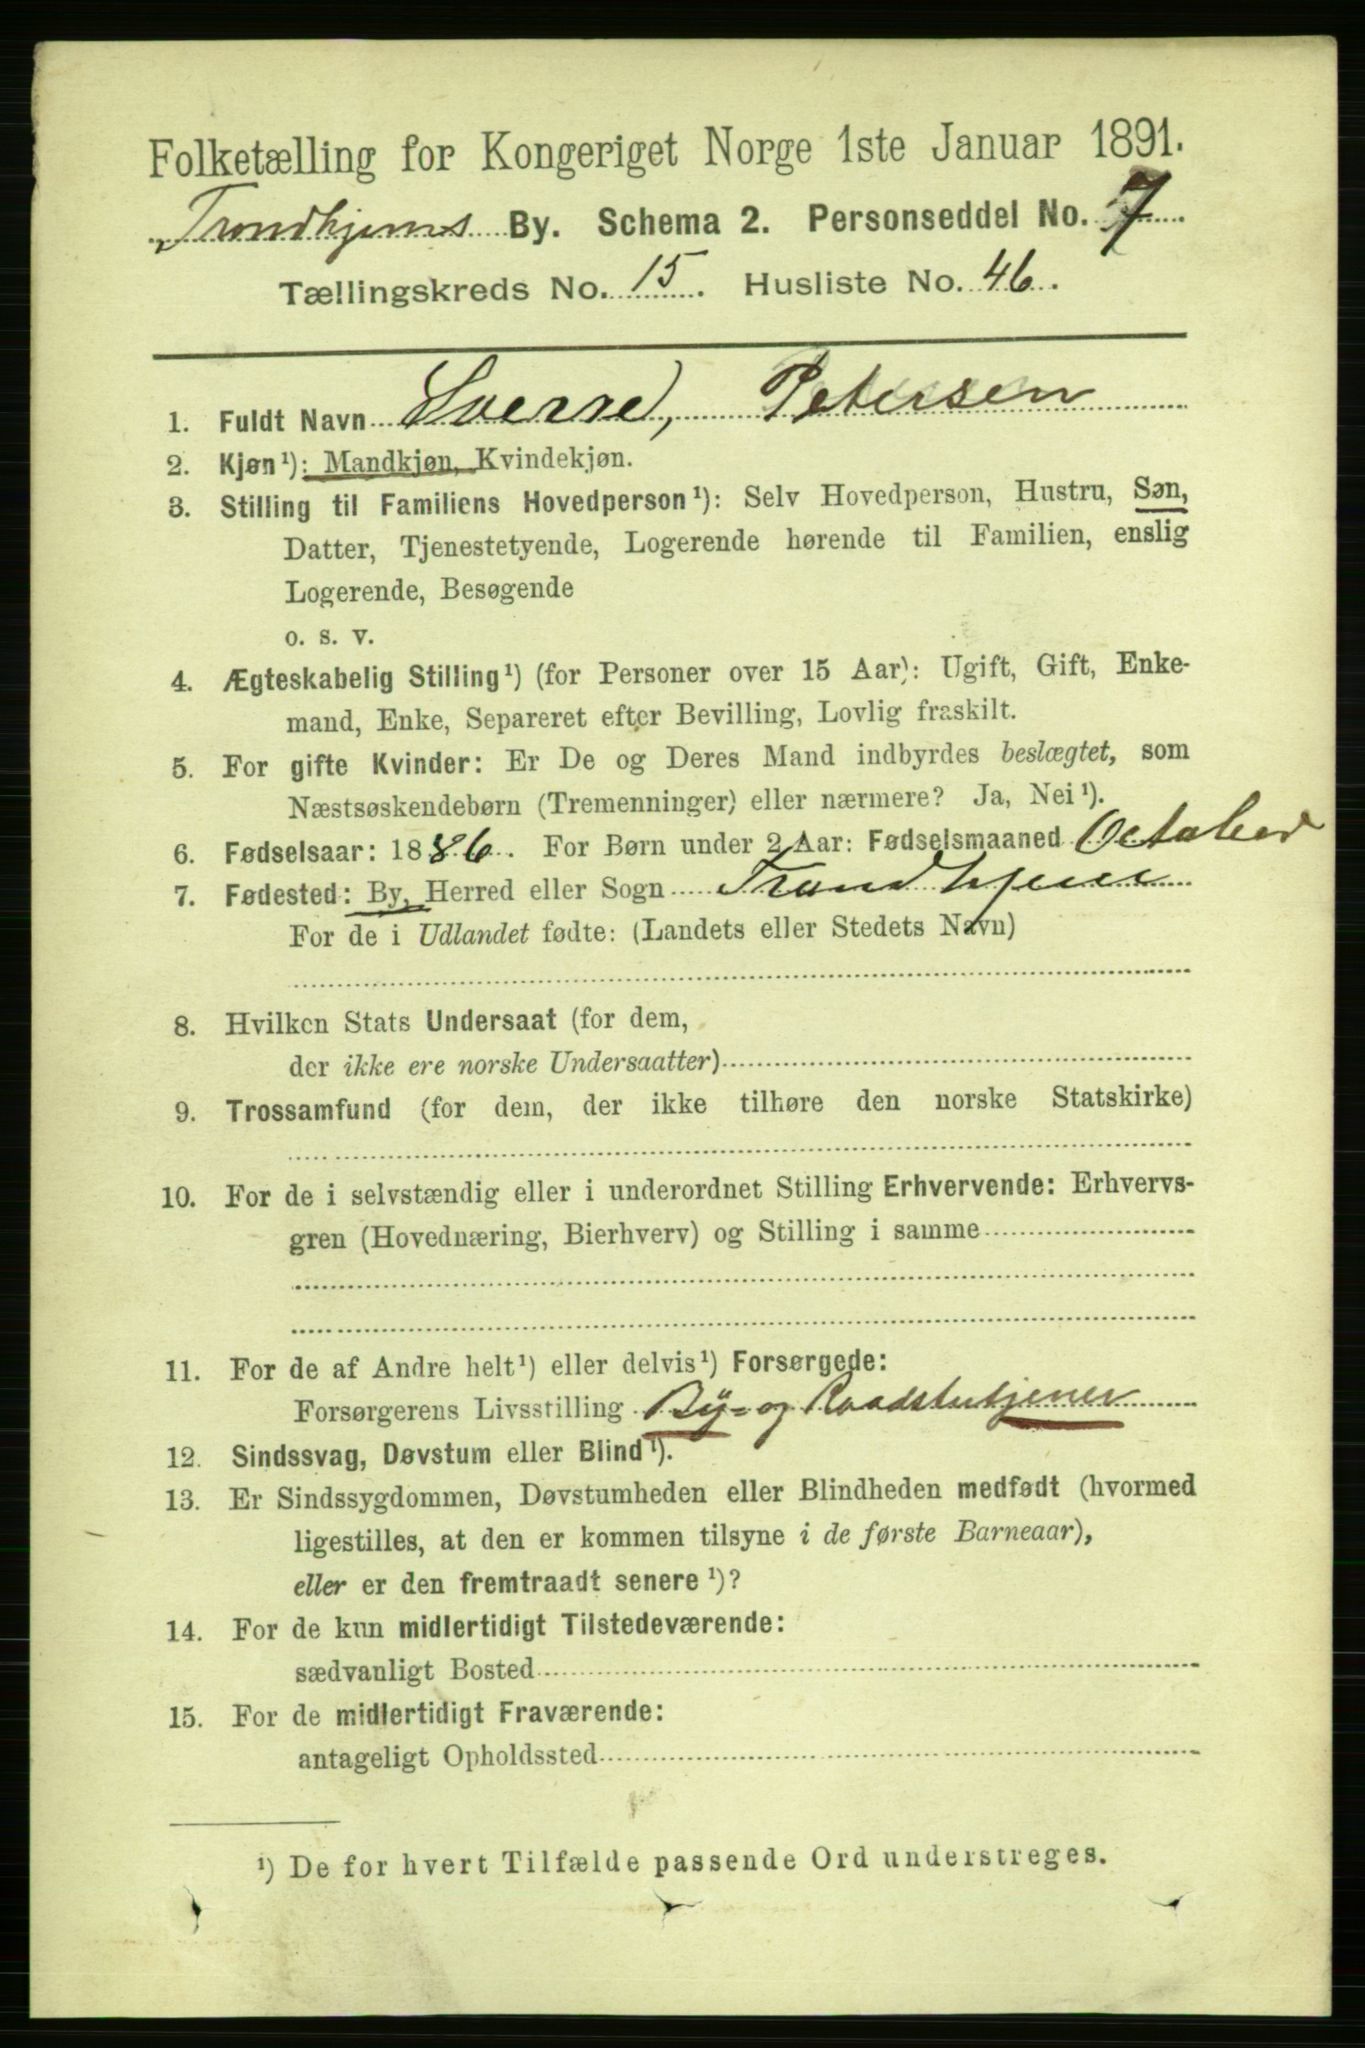 Folketælling for Kongeriget Norge 1ste Januar 1891.
Trondhjems By. Schema 2. Personseddel No. 7
Tællingskreds No. 15. Husliste No. 46.
1. Fuldt Navn Sverre, Petersen
2. Kjøn¹): Mandkjøn, Kvindekjøn.
3. Stilling til Familiens Hovedperson¹): Selv Hovedperson, Hustru, Søn,
Datter, Tjenestetyende, Logerende hørende til Familien, enslig
Logerende, Besøgende
o. s. v.
4. Ægteskabelig Stilling¹) (for Personer over 15 Aar): Ugift, Gift, Enke-
mand, Enke, Separeret efter Bevilling, Lovlig fraskilt.
5. For gifte Kvinder: Er De og Deres Mand indbyrdes beslægtet, som
Næstsøskendebørn (Tremenninger) eller nærmere? Ja, Nei¹).
6. Fødselsaar: 1886. For Børn under 2 Aar: Fødselsmaaned October
7. Fødested: By, Herred eller Sogn Trondhjem
For de i Udlandet fødte: (Landets eller Stedets Navn)
8. Hvilken Stats Undersaat (for dem,
der ikke ere norske Undersaatter)
9. Trossamfund (for dem, der ikke tilhøre den norske Statskirke)
10. For de i selvstændig eller i underordnet Stilling Erhvervende: Erhvervs-
gren (Hovednæring, Bierhverv) og Stilling i samme
11. For de af Andre helt¹) eller delvis¹) Forsørgede:
Forsørgerens Livsstilling By- og Raadstutjener
12. Sindssvag, Døvstum eller Blind¹).
13. Er Sindssygdommen, Døvstumheden eller Blindheden medfødt (hvormed
ligestilles, at den er kommen tilsyne i de første Barneaar),
eller er den fremtraadt senere¹)?
14. For de kun midlertidigt Tilstedeværende:
sædvanligt Bosted
15. For de midlertidigt Fraværende:
antageligt Opholdssted
¹) De for hvert Tilfælde passende Ord understreges.